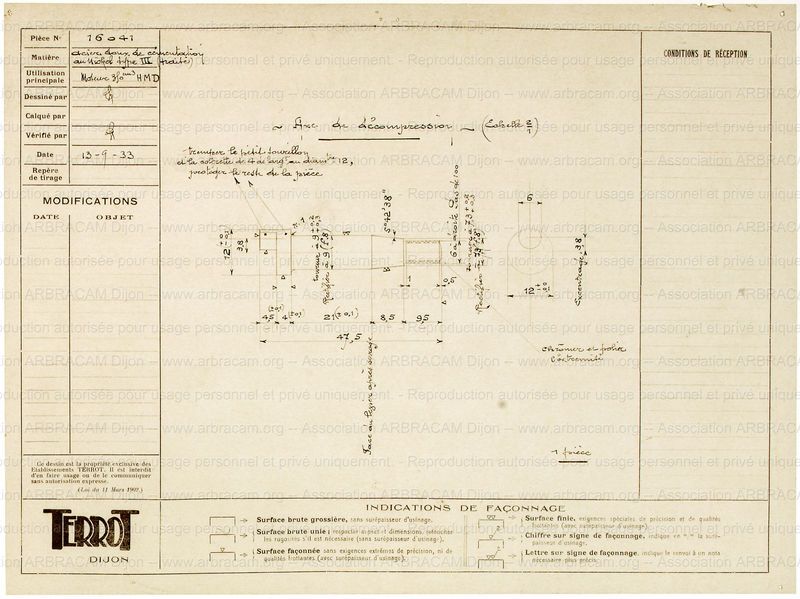 Pièce N° 16041
Matière acier doux de cémentation
au nickel type III (traité)
Utilisation
principale Moteur 350cm3 HMD
Dessiné par
Calqué par
Vérifié par
Date 13-9-33
Repère
de tirage
MODIFICATIONS
DATE OBJET
CONDITIONS DE RÉCEPTION
~ Axe de décompression ~ (Echelle 2/1)
tremper le petit tourillon
et la collerette de 4 de larg. au diam. 12,
protéger le reste de la pièce
5°42'38"
6
3,8
12
0,5
12
Excentrage 3,8
4,5 4 (±0,1) 21 (±0,1) 8,5 9,5
47,5
chromer et polir
l'extrémité
Face au logier après usinage
1 pièce
Ce dessin est la propriété exclusive des
Etablissements TERROT. Il est interdit
d'en faire usage ou de le communiquer
sans autorisation expresse.
(Loi du 11 Mars 1902.)
TERROT
DIJON
INDICATIONS DE FAÇONNAGE
Surface brute grossière, sans surépaisseur d'usinage.
Surface brute unie; respecter aspect et dimensions, retoucher
les rugosités s'il est nécessaire (sans surépaisseur d'usinage).
Surface façonnée sans exigences extrêmes de précision, ni de
qualités frottantes (avec surépaisseur d'usinage).
Surface finie, exigences spéciales de précision et de qualités
frottantes (avec surépaisseur d'usinage).
Chiffre sur signe de façonnage, indique en m/m la suré-
paisseur d'usinage.
Lettre sur signe de façonnage, indique le renvoi à un nota
nécessaire plus précis.
www.arbracam.org -- Association ARBRACAM Dijon -- www.arbracam.org -- Association ARBRACAM Dijon
Reproduction autorisée pour usage personnel et privé uniquement.